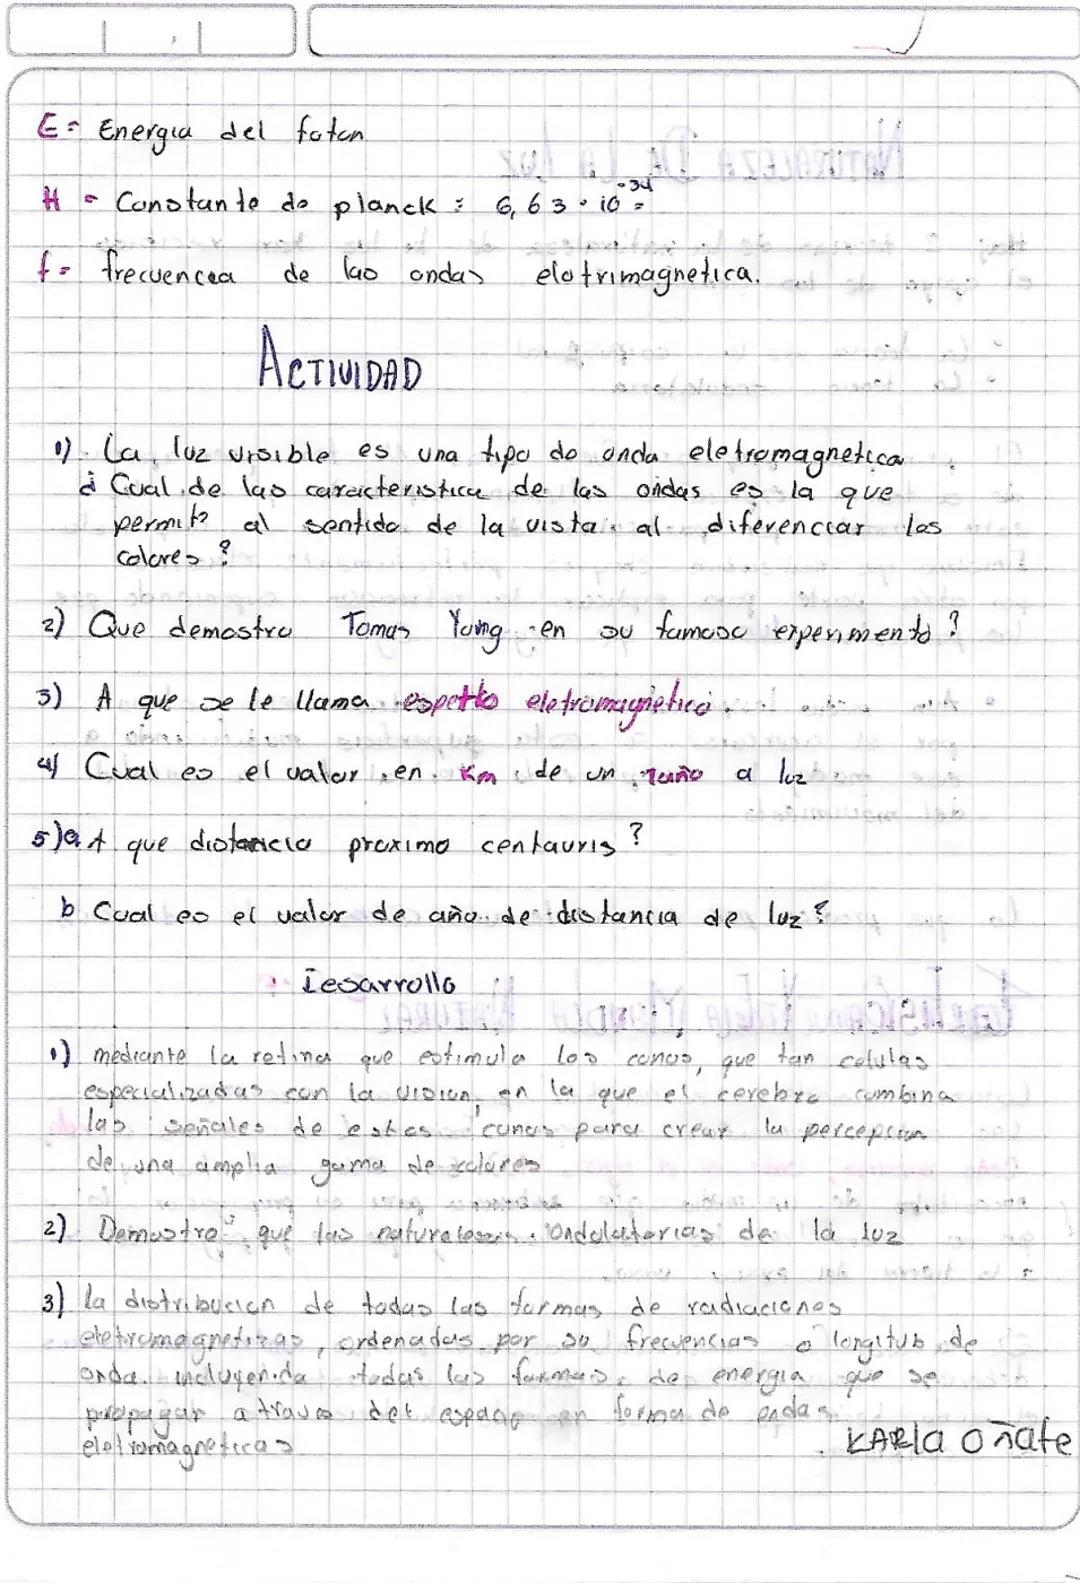 E= Energia del foton
H = Constante de planck = 6,63 · 10 -34 =
f= frecuencia de las ondas eletrimagnetica.
ACTIVIDAD
1) La luz visible es una tipo de onda eletromagnetica
¿ Cual de las caracteristica de las ondas es la que
permite al sentido de la vista al diferenciar los
colores ?
2) Que demostro Tomas Yumg en su famoso experimento ?
3) A que se le llama espetto eletromagnetico.
4) Cual es el valor en Km de un a luz
5)a A que distancia proximo centauris ?
b Cual es el valor de año de distancia de luz ?
Desarrollo
1) mediante la retina que estimula los conos, que tan celulas
especializadas con la vision, en la que el cerebro combina
las señales de estas conos para crear la percepcion
de una amplia gama de colores
2) Demostro que las naturalesas ondulatorias de la luz
3) la distribucion de todas las formas de radiaciones
eletromagneticas, ordenadas por su frecuencias o longitub de
onda. incluyenda todas las formas de energia que se
propagar a traves del espacio en forma de ondas
eletromagneticas
KARla oñate